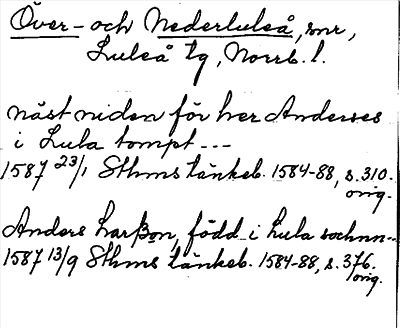 Över- och Nederluleå, snr,
Luleå tg, Norrb. l.
näst niden för her Anderses
i Lula tompt ---
1587 23/1 Sthms tänkeb. 1584-88, s. 310.
orig.
Anders Larßon, född i Lula sochnn--
1587 13/9 Sthms tänkeb. 1584-88, s. 376.
orig.